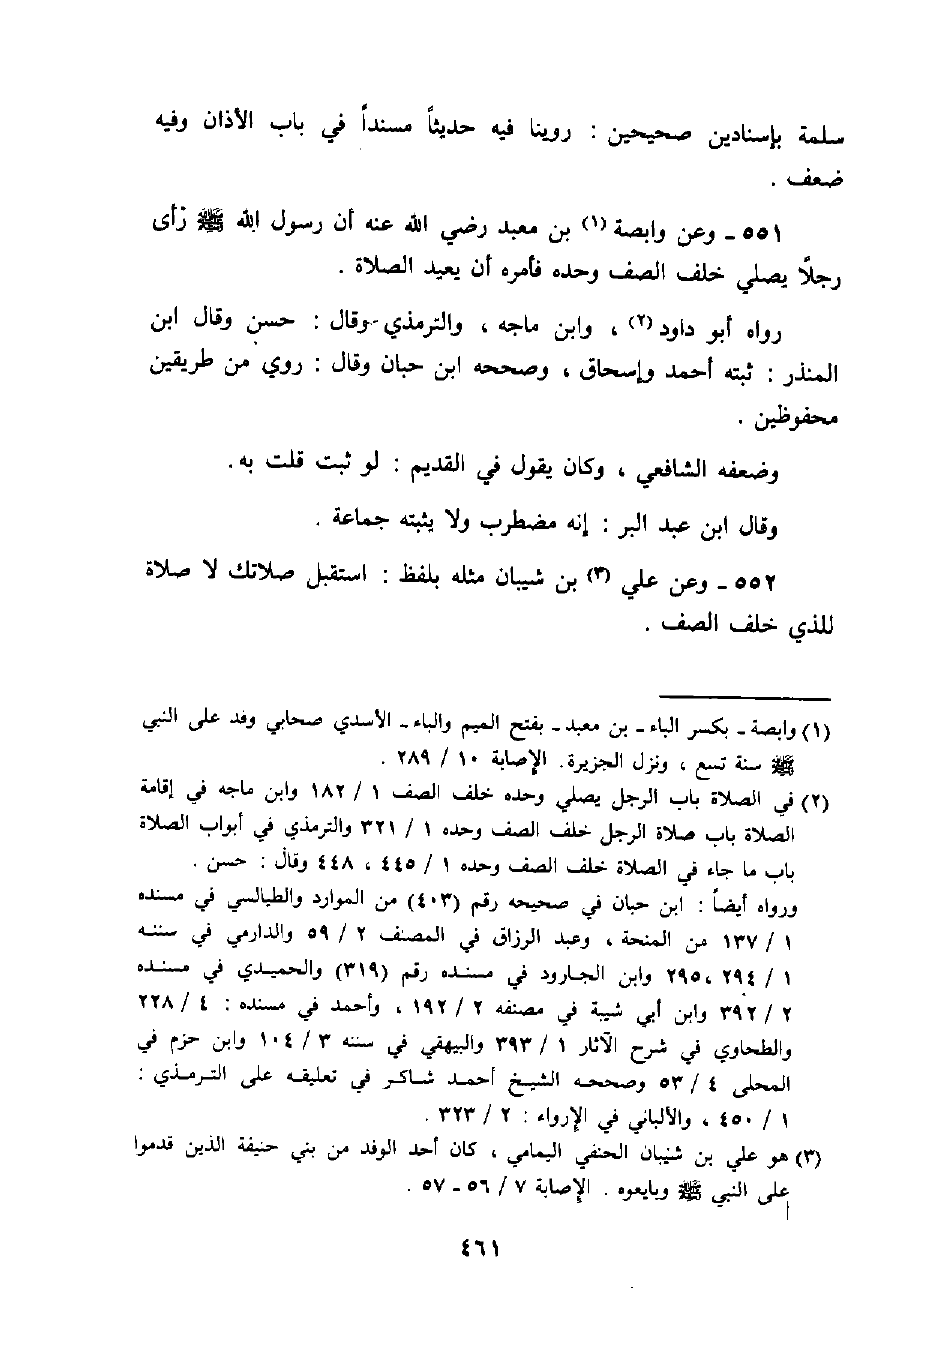 سلمة بإسنادين صحيحين : روينا فيه حديثاً مسنداً في باب الأذان وفيه
ضعف .
٥٥١ ـ وعن وابصة (١) بن معبد رضي الله عنه أن رسول الله ﷺ رأى
رجلًا يصلي خلف الصف وحده فأمره أن يعيد الصلاة .
رواه أبو داود (٢) ، وابن ماجه ، والترمذي وقال : حسن وقال ابن
المنذر : ثبته أحمد وإسحاق ، وصححه ابن حبان وقال : روي من طريقين
محفوظين .
وضعفه الشافعي ، وكان يقول في القديم : لو ثبت قلت به .
وقال ابن عبد البر : إنه مضطرب ولا يثبته جماعة .
٥٥٢ ـ وعن علي (٣) بن شيبان مثله بلفظ : استقبل صلاتك لا صلاة
للذي خلف الصف .
(١) وابصة ـ بكسر الباء ـ بن معبد ـ بفتح الميم والباء ـ الأسدي صحابي وفد على النبي
ﷺ سنة تسع ، ونزل الجزيرة . الإصابة ١٠ / ٢٨٩ .
(٢) في الصلاة باب الرجل يصلي وحده خلف الصف ١ / ١٨٢ وابن ماجه في إقامة
الصلاة باب صلاة الرجل خلف الصف وحده ١ / ٣٢١ والترمذي في أبواب الصلاة
باب ما جاء في الصلاة خلف الصف وحده ١ / ٤٤٥ ، ٤٤٨ وقال : حسن .
ورواه أيضاً : ابن حبان في صحيحه رقم (٤٠٣) من الموارد والطيالسي في مسنده
١ / ١٣٧ من المنحة ، وعبد الرزاق في المصنف ٢ / ٥٩ والدارمي في سننه
١ / ٢٩٤ ، ٢٩٥ وابن الجارود في مسنده رقم (٣١٩) والحميدي في مسنده
٢ / ٣٩٢ وابن أبي شيبة في مصنفه ٢ / ١٩٢ ، وأحمد في مسنده : ٤ / ٢٢٨
والطحاوي في شرح الآثار ١ / ٣٩٣ والبيهقي في سننه ٣ / ١٠٤ وابن حزم في
المحلى ٤ / ٥٣ وصححه الشيخ أحمد شاكر في تعليقه على الترمذي :
١ / ٤٥٠ ، والألباني في الإرواء : ٢ / ٣٢٣ .
(٣) هو علي بن شيبان الحنفي اليمامي ، كان أحد الوفد من بني حنيفة الذين قدموا
على النبي ﷺ وبايعوه . الإصابة ٧ / ٥٦ ـ ٥٧ .
٤٦١